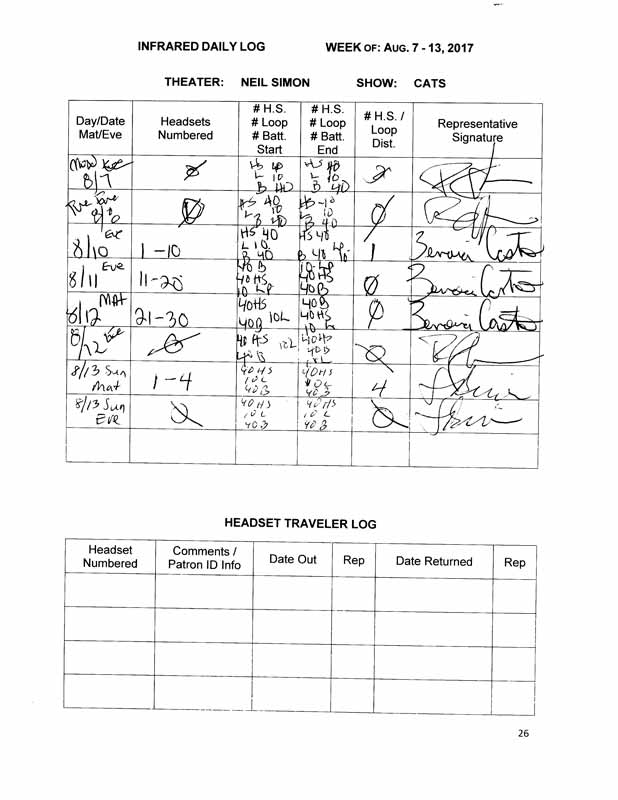 INFRARED DAILY LOG WEEK OF: AUG. 7 - 13, 2017
THEATER: NEIL SIMON SHOW: CATS
Day/Date Mat/Eve Headsets Numbered # H.S. # Loop # Batt. Start # H.S. # Loop # Batt. End # H.S. / Loop Dist. Representative Signature
Mon Eve 8/7 Ø HS 40 L 10 B 40 HS 40 L 10 B 40 Ø
Tue Eve 8/8 Ø HS 40 L 10 B 40 Ø
Eve 8/10 1-10 HS 40 L 10 B 40 HS 40 B 40 1
Eve 8/11 11-20 40 B 40HS 10 LP 10 LP 40HS 40B Ø
MAT 8/12 21-30 40HS 40B 10L 40B 40HS 10 L Ø
8/12 Eve Ø 40 HS 40B 10L 40HS 40B 10L Ø
8/13 Sun Mat 1-4 40HS 10L 40B 40HS 10L 40B 4
8/13 Sun Eve Ø 40HS 10L 40B 40HS 10L 40B Ø
HEADSET TRAVELER LOG
Headset Numbered Comments / Patron ID Info Date Out Rep Date Returned Rep
26